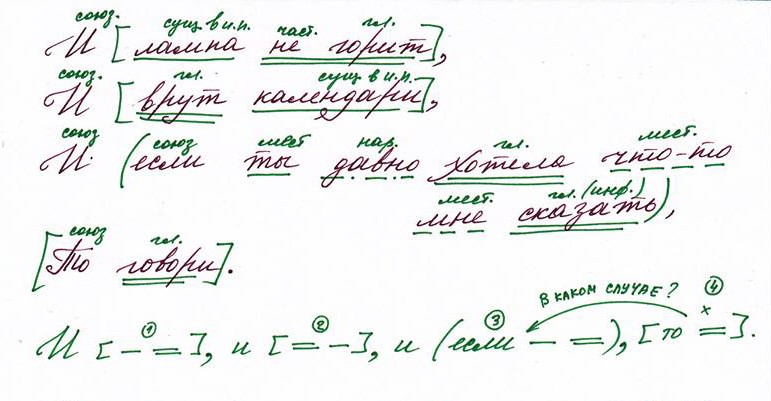 союз. сущ. в и.п. част. гл.
И [лампа не горит],
союз. гл. сущ. в и.п.
И [врут календари],
союз союз мест нар. гл. мест.
И (если ты давно хотела что-то
мест. гл. (инф.)
мне сказать),
союз гл.
[То говори].
В КАКОМ СЛУЧАЕ?
1 2 3 4 х
И [– =], и [= –], и (если – =), [то =].